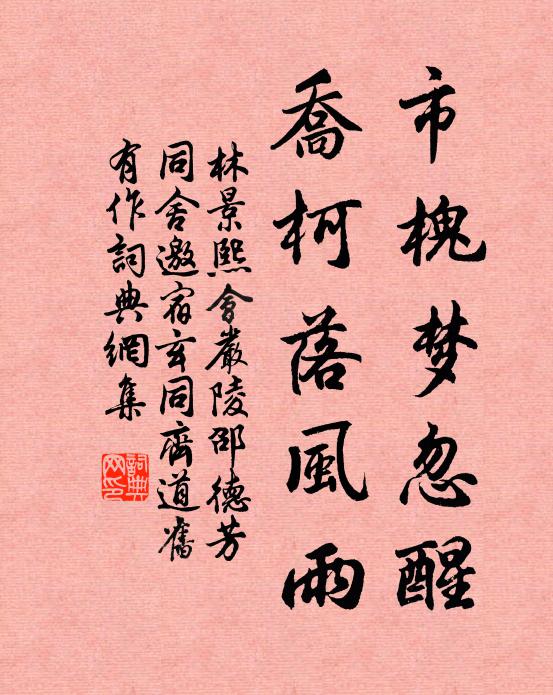 市槐梦忽醒
喬柯落風雨
林景熙會嚴陵邵德芳
同舍邀宿玄同齋道舊
有作詞典網集
詞典網印